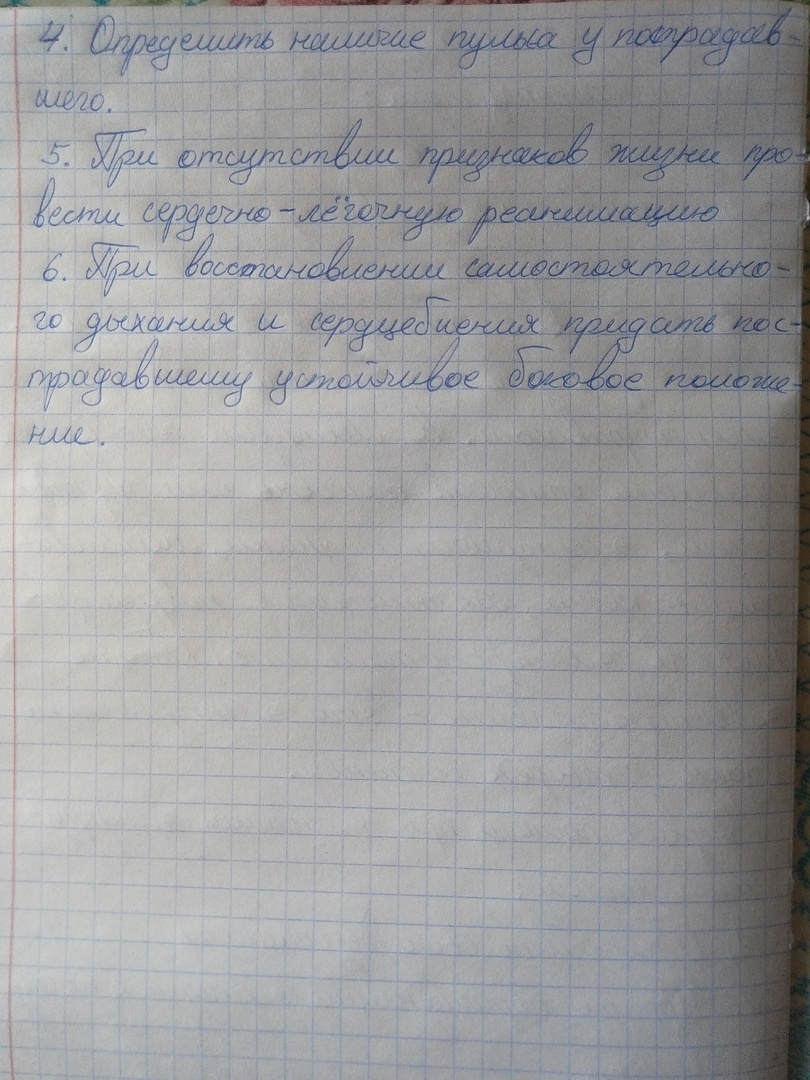 4. Определить наличие пульса у пострадав-
шего.
5. При отсутствии признаков жизни про-
вести сердечно-лёгочную реанимацию
6. При восстановлении самостоятельно-
го дыхания и сердцебиения придать пос-
традавшему устойчивое боковое положе-
ние.